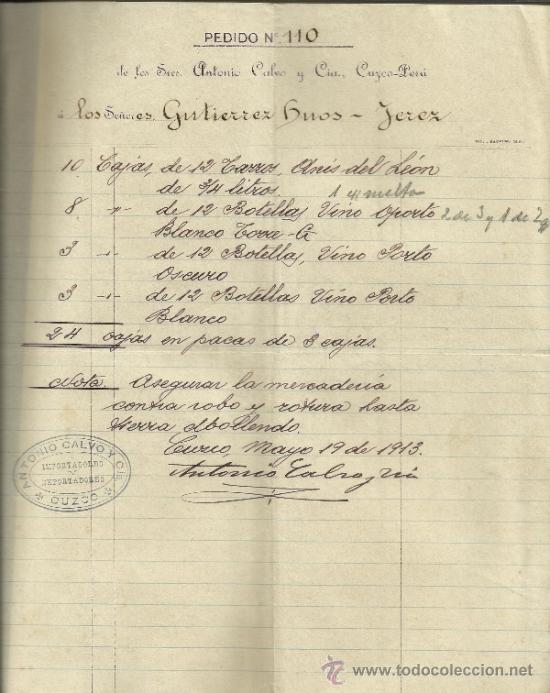 PEDIDO Nº 110
de los Sres. Antonio Calvo y Cía., Cuzco-Perú
á los Señores, Gutierrez Hnos - Jerez
10 Cajas, de 12 Tarros, Anis del León
de 3/4 litros.
8 " de 12 Botellas, Vino Oporto 2 de 3 y 1 de 2
Blanco Torre-
3 " de 12 Botellas, Vino Porto
Oscuro
3 " de 12 Botellas Vino Porto
Blanco
24 Cajas en pacas de 3 cajas.
Nota. Asegurar la mercadería
contra robo y rotura hasta
tierra Mollendo.
Cuzco, Mayo 19 de 1913.
Antonio Calvo y Cía
ANTONIO CALVO Y CIA
IMPORTADORES
Y
EXPORTADORES
CUZCO
www.todocoleccion.net